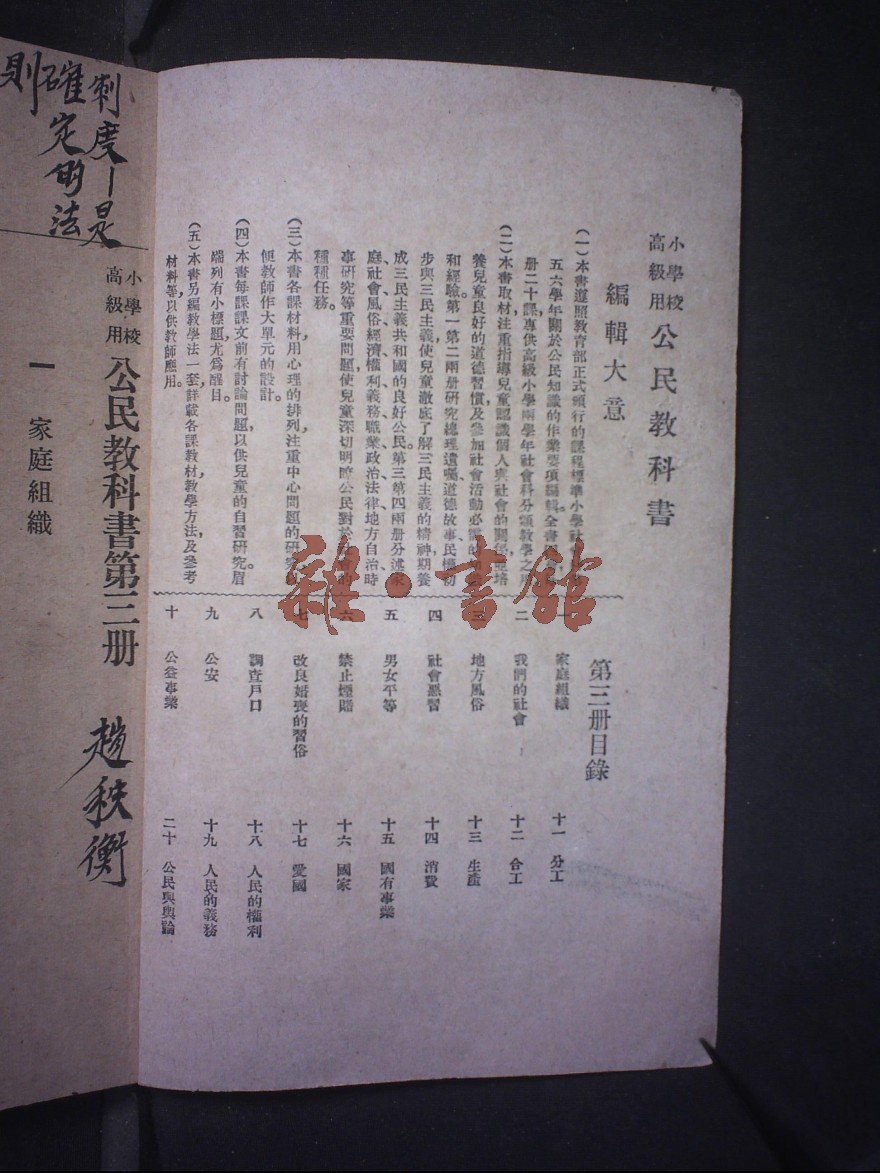 小學校
高級用
公民教科書
編輯大意
(一)本書遵照教育部正式頒行的課程標準小學社會
五六學年關於公民知識的作業要項編輯全書
册二十課,專供高級小學兩學年社會科分類教學之用
(二)本書取材,注重指導兒童認識個人與社會的關係,並培
養兒童良好的道德習慣及參加社會活動必需的知識
和經驗。第一第二兩册研究總理遺囑、道德故事、民權初
步與三民主義,使兒童澈底了解三民主義的精神,期養
成三民主義共和國的良好公民。第三第四兩册分述家
庭、社會、風俗、經濟、權利、義務、職業、政治、法律、地方自治、時
事研究等重要問題,使兒童深切明瞭公民對於的
種種任務。
(三)本書各課材料,用心理的排列,注重中心問題的研究,
便教師作大單元的設計。
(四)本書每課課文前有討論問題,以供兒童的自習研究。眉
端列有小標題,尤爲醒目。
(五)本書另編教學法一套,詳載各課教材教學方法,及參考
材料等,以供教師應用。
第三册目錄
一 家庭組織
二 我們的社會
三 地方風俗
四 社會惡習
五 男女平等
六 禁止煙賭
七 改良婚喪的習俗
八 調查戶口
九 公安
十 公益事業
十一 分工
十二 合工
十三 生產
十四 消費
十五 國有事業
十六 國家
十七 愛國
十八 人民的權利
十九 人民的義務
二十 公民與輿論
雜·書館
制度—是
確定的法
則
小學校
高級用
公民教科書第三册
趙秩衡
一 家庭組織